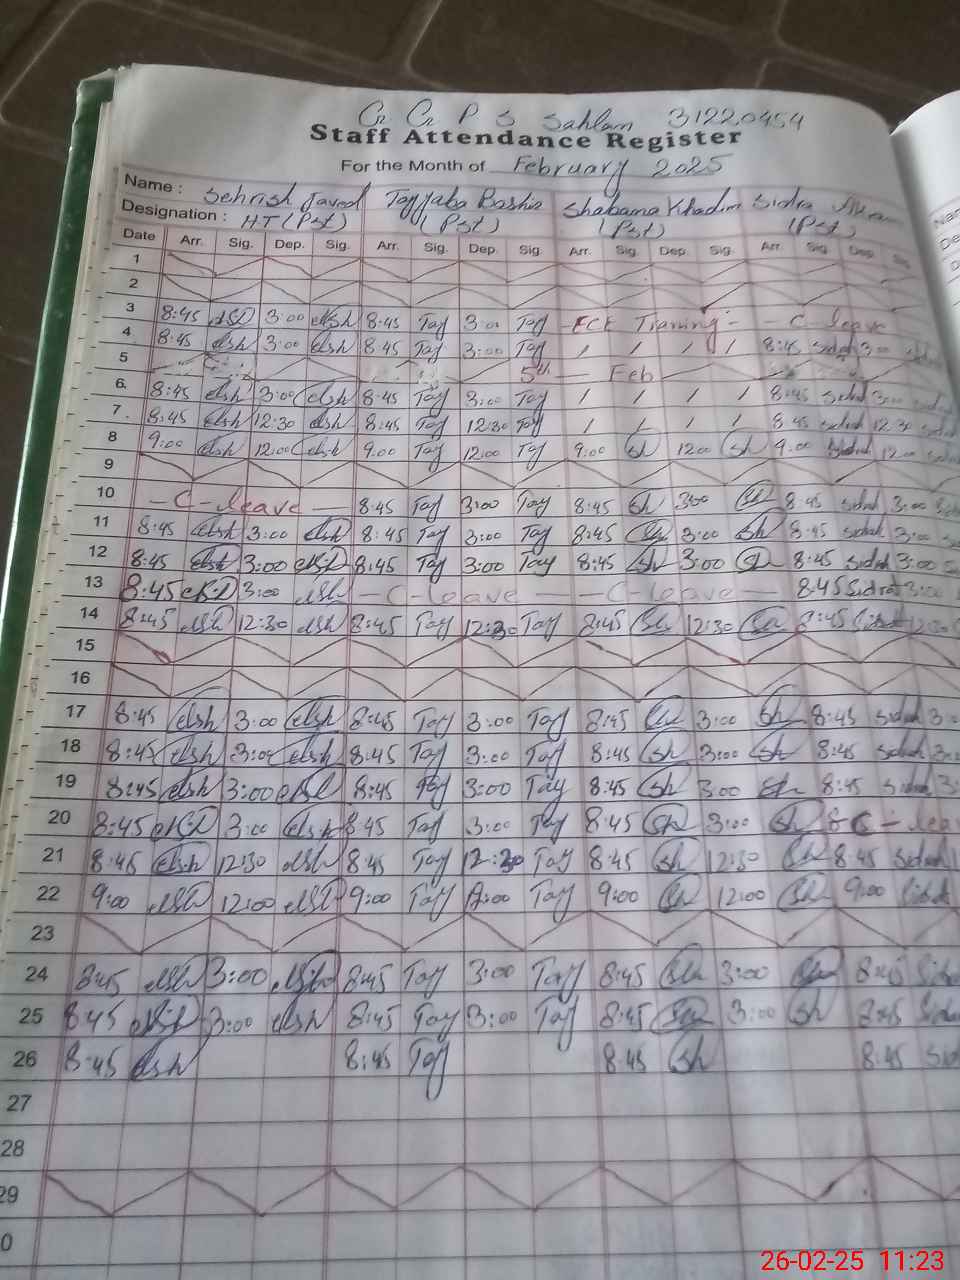 G G P S Sahlam 31220454
Staff Attendance Register
For the Month of February 2025
Name : Sehrish Javed Tayyaba Bashir Shabana Khadim Sidra
Designation : HT (Pst) (Pst) (Pst) (Pst)
Date Arr. Sig. Dep. Sig. Arr. Sig. Dep. Sig. Arr. Sig. Dep. Sig. Arr. Sig. Dep. Sig.
1
2
3 8:45 3:00 8:45 Tay 3:00 Tay - ECE Training - - C-leave
4 8:45 elsh 3:00 elsh 8:45 Tay 3:00 Tay / / / / 8:45 sidrah 3:00
5 5th — Feb
6. 8:45 elsh 3:00 elsh 8:45 Tay 3:00 Tay / / / / 8:45 sidrah 3:00 sidrah
7. 8:45 elsh 12:30 elsh 8:45 Tay 12:30 Tay / / / / 8:45 sidrah 12:30 sidrah
8 9:00 elsh 12:00 elsh 9:00 Tay 12:00 Tay 9:00 sh 12:00 sh 9:00 sidrah 12:00
9
10 - C-leave - 8:45 Tay 3:00 Tay 8:45 sh 3:00 8:45 sidrah 3:00
11 8:45 elsh 3:00 elsh 8:45 Tay 3:00 Tay 8:45 3:00 sh 8:45 sidrah 3:00
12 8:45 elsh 3:00 8:45 Tay 3:00 Tay 8:45 sh 3:00 8:45 sidrah 3:00
13 8:45 3:00 elsh - C-leave - C-leave - 8:45 Sidrah 3:00
14 8:45 12:30 elsh 8:45 Tay 12:30 Tay 8:45 12:30 8:45 12:30
15
16
17 8:45 elsh 3:00 elsh 8:45 Tay 3:00 Tay 8:45 3:00 sh 8:45 sidrah 3:00
18 8:45 elsh 3:00 elsh 8:45 Tay 3:00 Tay 8:45 sh 3:00 sh 8:45 sidrah
19 8:45 elsh 3:00 8:45 Tay 3:00 Tay 8:45 sh 3:00 sh 8:45 sidrah
20 8:45 3:00 elsh 8:45 Tay 3:00 Tay 8:45 sh 3:00 sh C-leave
21 8:45 elsh 12:30 elsh 8:45 Tay 12:30 Tay 8:45 sh 12:30 sh 8:45 sidrah
22 9:00 12:00 9:00 Tay 12:00 Tay 9:00 12:00 9:00 sidrah
23
24 8:45 3:00 8:45 Tay 3:00 Tay 8:45 3:00 8:45
25 8:45 3:00 elsh 8:45 Tay 3:00 Tay 8:45 3:00 sh 8:45
26 8:45 elsh 8:45 Tay 8:45 sh 8:45
27
28
29
26-02-25 11:23